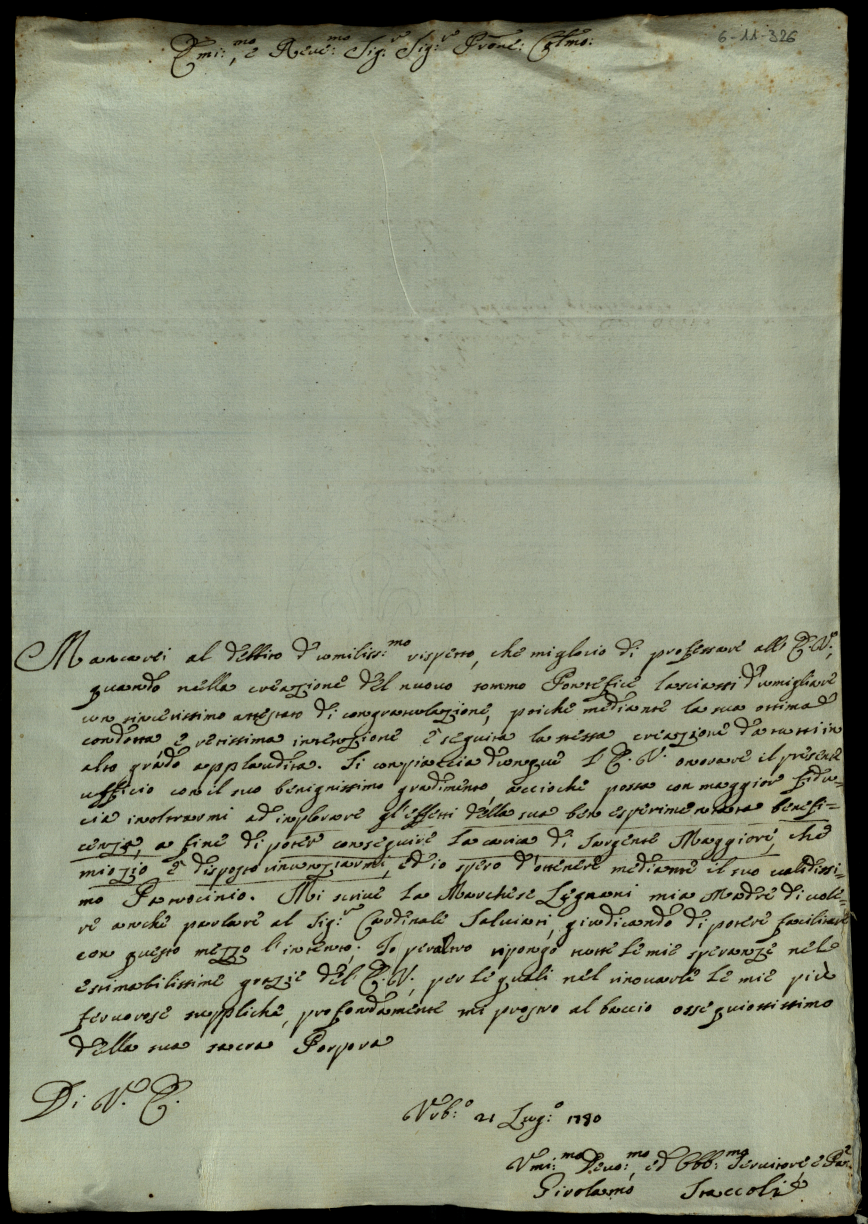 6-11-326
Emi:mo, e Reve:mo Sig:r Sig:r Prōne: Colmo:
Mancarei al debito d'umiliss:mo rispetto, che mi glorio di professare all'E. V.,
quando nella creazione del nuovo sommo Pontefice lasciassi d'umigliare
un sincerissimo attestato di congratulazione, poiche mediante la sua ottima
condotta e rettissima intenzione è seguita la stessa creazione da tutti in
alto grado applaudita. Si compiaccia dunque l'E. V. onorare il presente
uffício con il suo benignissimo gradimento, accioche possa con maggior fidu=
cia inoltrarmi ad implorare gl'effetti della sua ben esperimentata benefi=
cenza, a fine di poter conseguire la carica di Sargente Maggiore, che
mio zio è disposto rinunziarmi, ed io spero d'ottenere mediante il suo validissi=
mo Patrocinio. Mi scrive la Marchese Legnani mia Madre di vole=
re anche parlare al Sig:r Cardinale Salviati, giudicando di potere facilitare
con questo mezzo l'intento; Io peraltro ripongo tutte le mie speranze nele
estimabilissime grazie del E. V., per le quali nel rinovarle le mie più
fervorose suppliche, profondamente mi prostro al baccio ossequiosissimo
della sua sacra Porpora
Di V. E.
Urb:o 21 Lug:o 1730
Umi:mo Devo:mo, ed Obb:mo Servitore e
Girolamo Staccoli